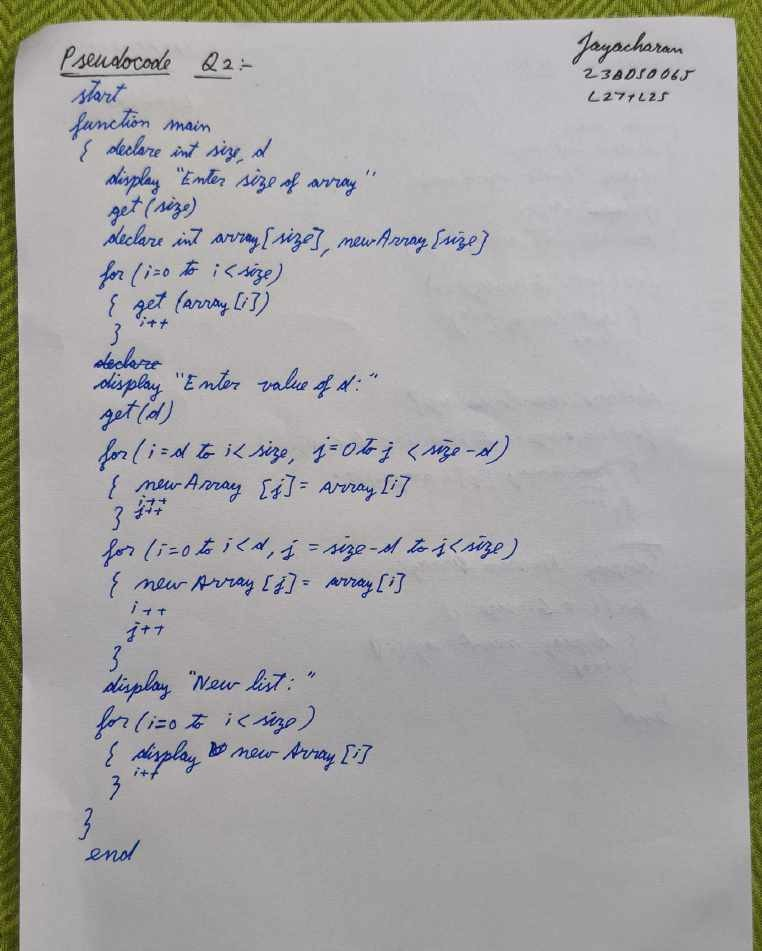 Pseudocode Q2:-
Jayacharan
23AD50065
L27+L25
start
function main
{ declare int size, d
display "Enter size of array"
get (size)
declare int array[size], newArray[size]
for (i=0 to i<size)
{ get (array[i])
i++
}
declare
display "Enter value of d:"
get(d)
for (i=d to i<size, j=0 to j <size-d)
{ newArray [j]= array[i]
i++
} j++
for (i=0 to i<d, j = size-d to j<size)
{ new Array [j]= array[i]
i++
j++
}
display "New list: "
for (i=0 to i<size)
{ display new Array [i]
i++
}
}
end